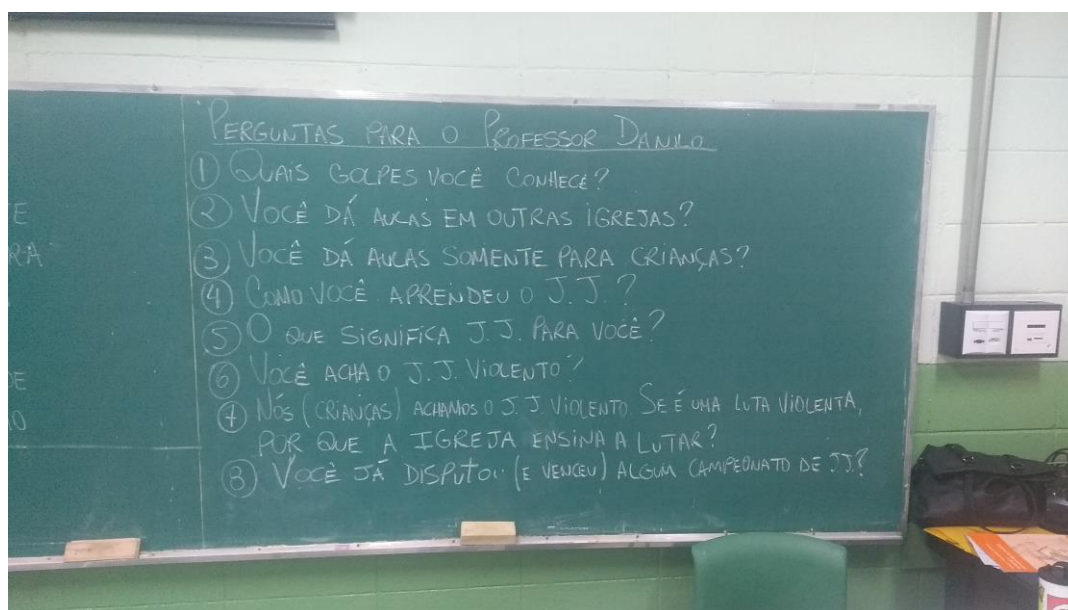 PERGUNTAS PARA O PROFESSOR DANILO
① QUAIS GOLPES VOCÊ CONHECE?
② VOCÊ DÁ AULAS EM OUTRAS IGREJAS?
③ VOCÊ DÁ AULAS SOMENTE PARA CRIANÇAS?
④ COMO VOCÊ APRENDEU O J.J.?
⑤ O QUE SIGNIFICA J.J. PARA VOCÊ?
⑥ VOCÊ ACHA O J.J. VIOLENTO?
⑦ NÓS (CRIANÇAS) ACHAMOS O J.J VIOLENTO. SE É UMA LUTA VIOLENTA,
POR QUE A IGREJA ENSINA A LUTAR?
⑧ VOCÊ JÁ DISPUTOU (E VENCEU) ALGUM CAMPEONATO DE JJ?